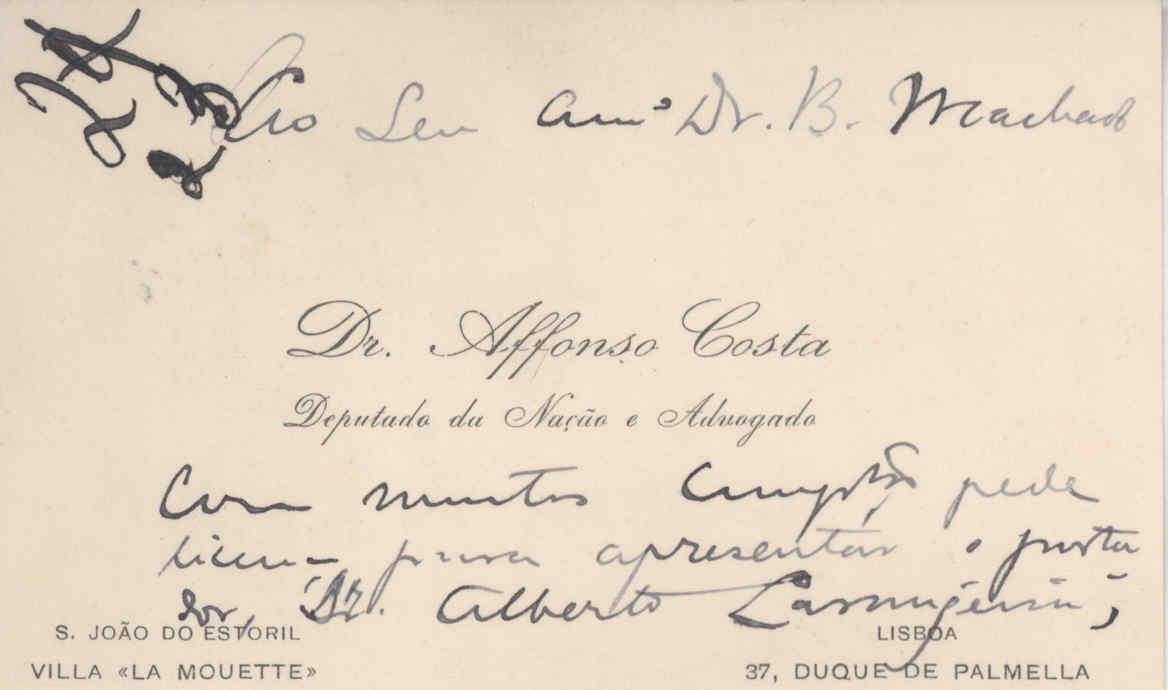 Ao Seu Amº Dr. B. Machado
Dr. Affonso Costa
Deputado da Nação e Advogado
Com muitos cumptos pede
licença para apresentar o porta
dor, Dr. Alberto Laranjeira,
S. JOÃO DO ESTORIL
VILLA «LA MOUETTE»
LISBOA
37, DUQUE DE PALMELLA